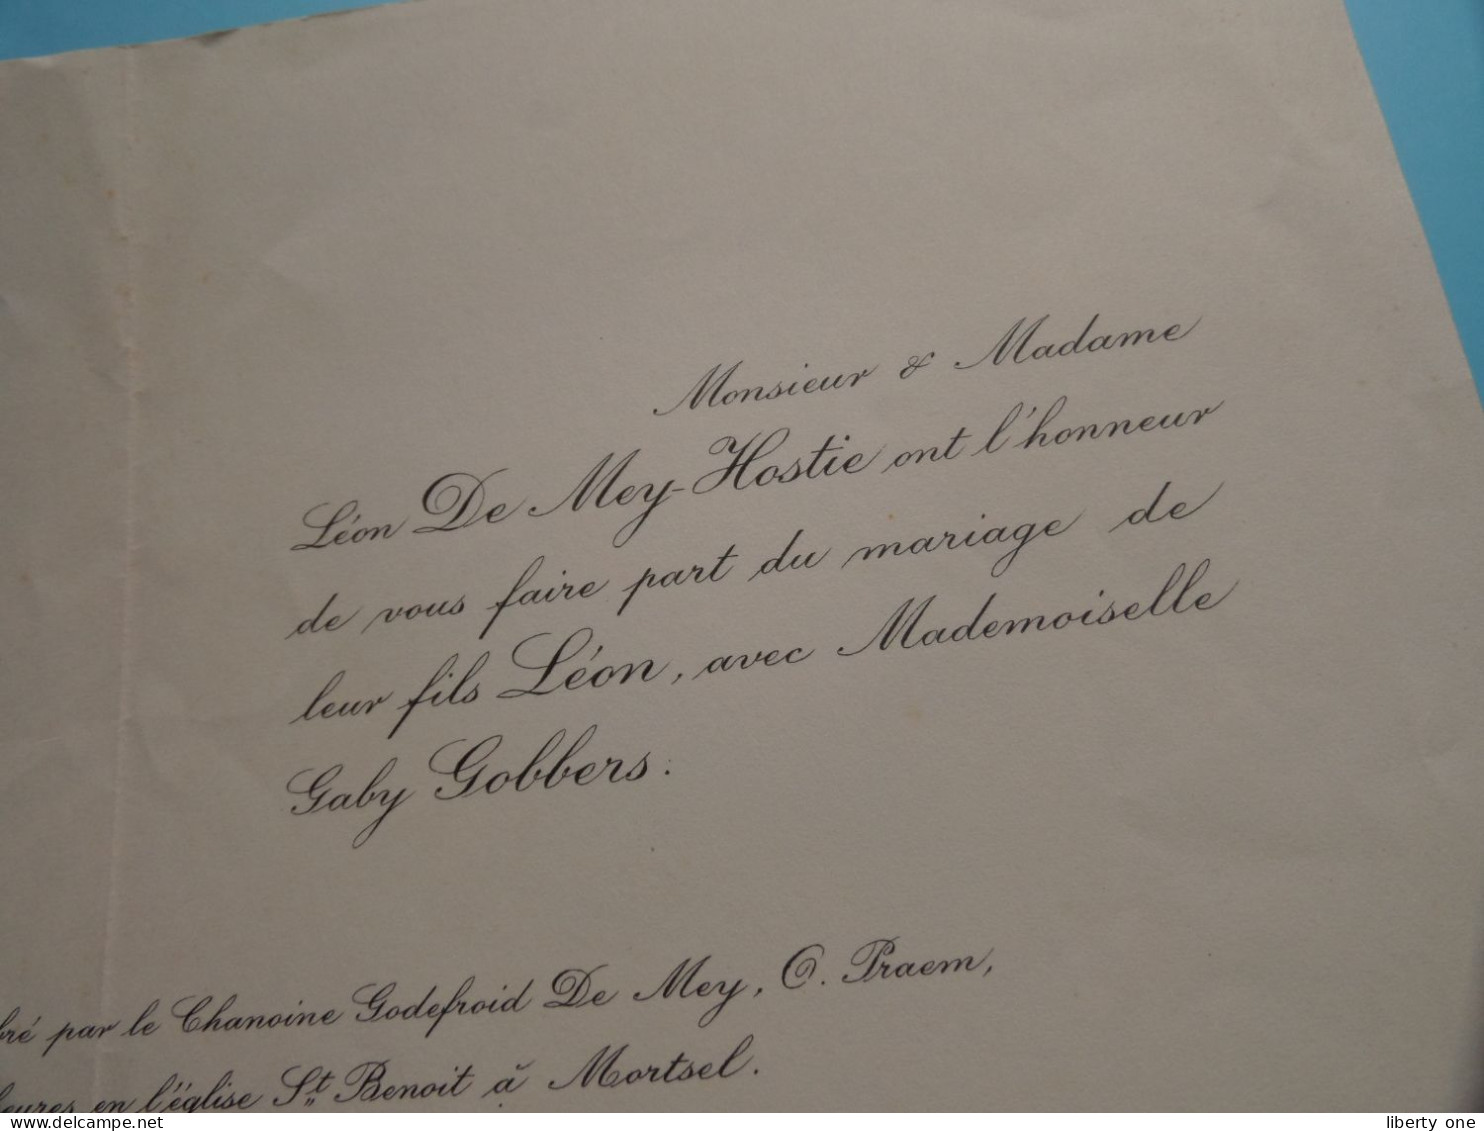 Monsieur & Madame
Léon De Mey-Hostie ont l'honneur
de vous faire part du mariage de
leur fils Léon, avec Mademoiselle
Gaby Gobbers.
bré par le Chanoine Godefroid De Mey, O. Praem,
heures en l'église St Benoit à Mortsel.
liberty one